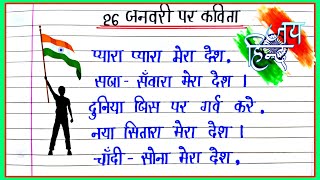 26 जनवरी पर कविता
जय
हिन्द
प्यारा प्यारा मेरा देश,
सजा - सँवारा मेरा देश ।
दुनिया जिस पर गर्व करे,
नया सितारा मेरा देश ।
चाँदी - सोना मेरा देश,